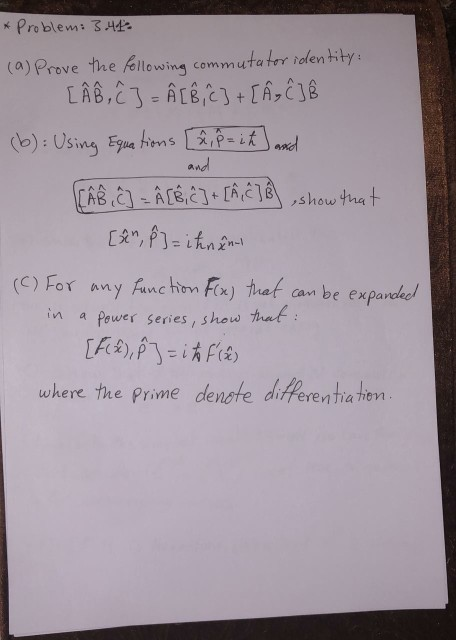 * Problem: 3.41:
(a) Prove the following commutator identity:
[ÂB̂, Ĉ] = Â[B̂,Ĉ] + [Â,Ĉ]B̂
(b): Using Equations [x̂,p̂ = iħ] and
and
[ÂB̂,Ĉ] = Â[B̂,Ĉ]+[Â,Ĉ]B̂ , show that
[x̂ⁿ, p̂] = iħn x̂ⁿ⁻¹
(C) For any function F(x) that can be expanded
in a power series, show that:
[F(x̂), p̂] = iħ F'(x̂)
where the prime denote differentiation.